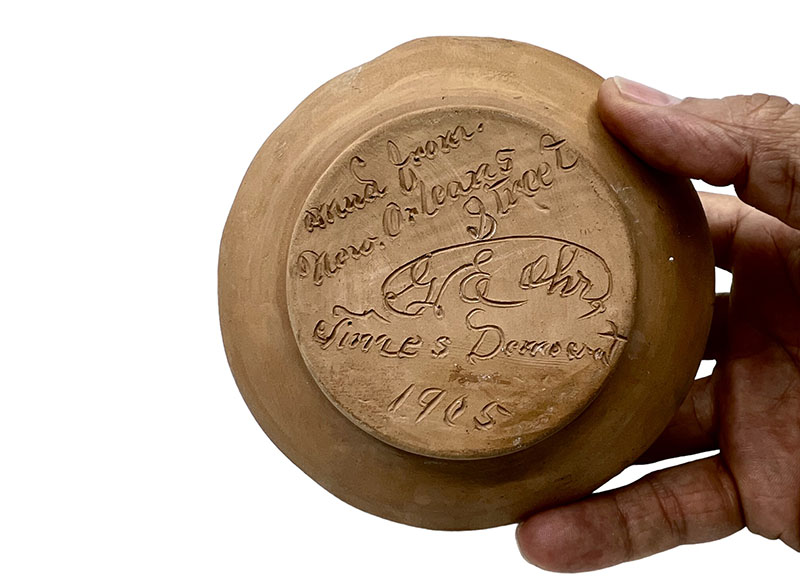 mud from.
New. Orleans
Street
G. E Ohr,
Times Democrat
1905